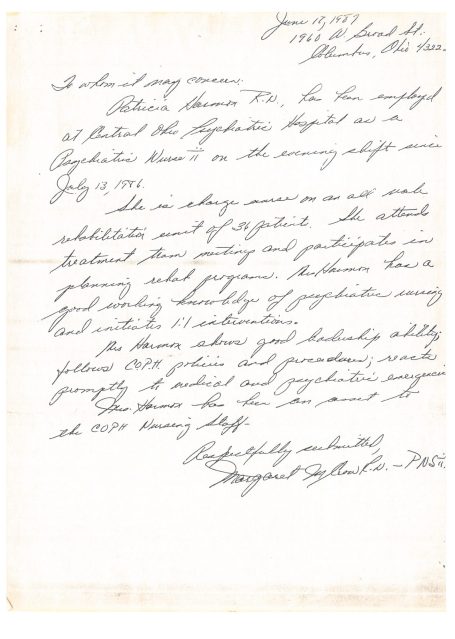 June 17, 1987
1960 W Broad St.
Columbus, Ohio 4322
To whom it may concern:
Patricia Harmon R.N., has been employed
at Central Ohio Psychiatric Hospital as a
Psychiatric Nurse II on the evening shift since
July 13, 1986.
She is charge nurse on an all male
rehabilitation unit of 36 patients. She attends
treatment team meetings and participates in
planning rehab programs. Mrs. Harmon has a
good working knowledge of psychiatric nursing
and initiates 1:1 interventions.
Mrs Harmon shows good leadership ability;
follows COPH policies and procedures; reacts
promptly to medical and psychiatric emergencies
Mrs. Harmon has been an asset to
the COPH Nursing Staff.
Respectfully submitted,
Margaret R.N. - PNS II.